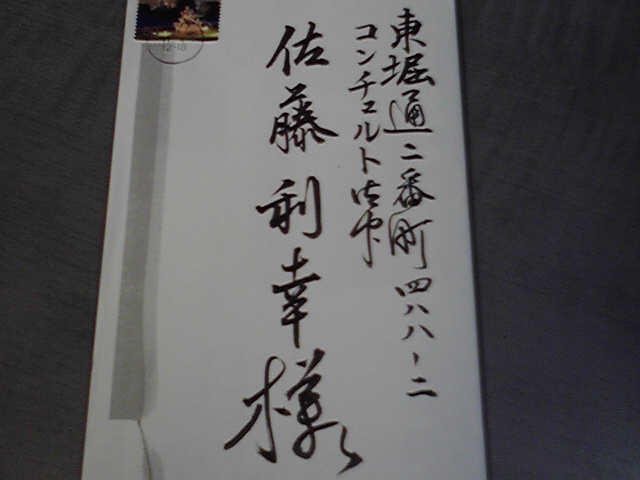 東堀通二番町四八八-二
コンチェルト御中
佐藤利幸様